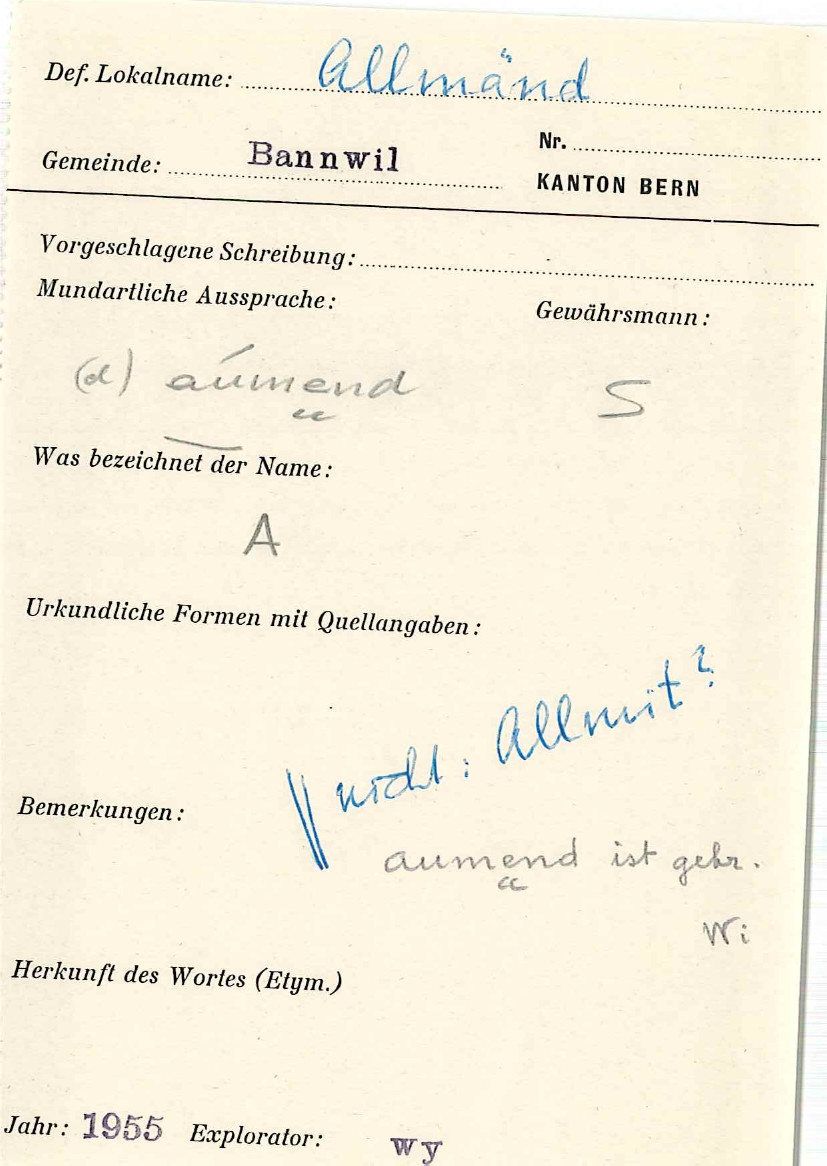 Def. Lokalname: Allmänd
Gemeinde: Bannwil
Nr.
KANTON BERN
Vorgeschlagene Schreibung:
Mundartliche Aussprache:
Gewährsmann:
(d) aúmend
S
Was bezeichnet der Name:
A
Urkundliche Formen mit Quellangaben:
nicht: Allmit?
Bemerkungen:
aumend ist gebr.
Wi
Herkunft des Wortes (Etym.)
Jahr: 1955 Explorator: wy